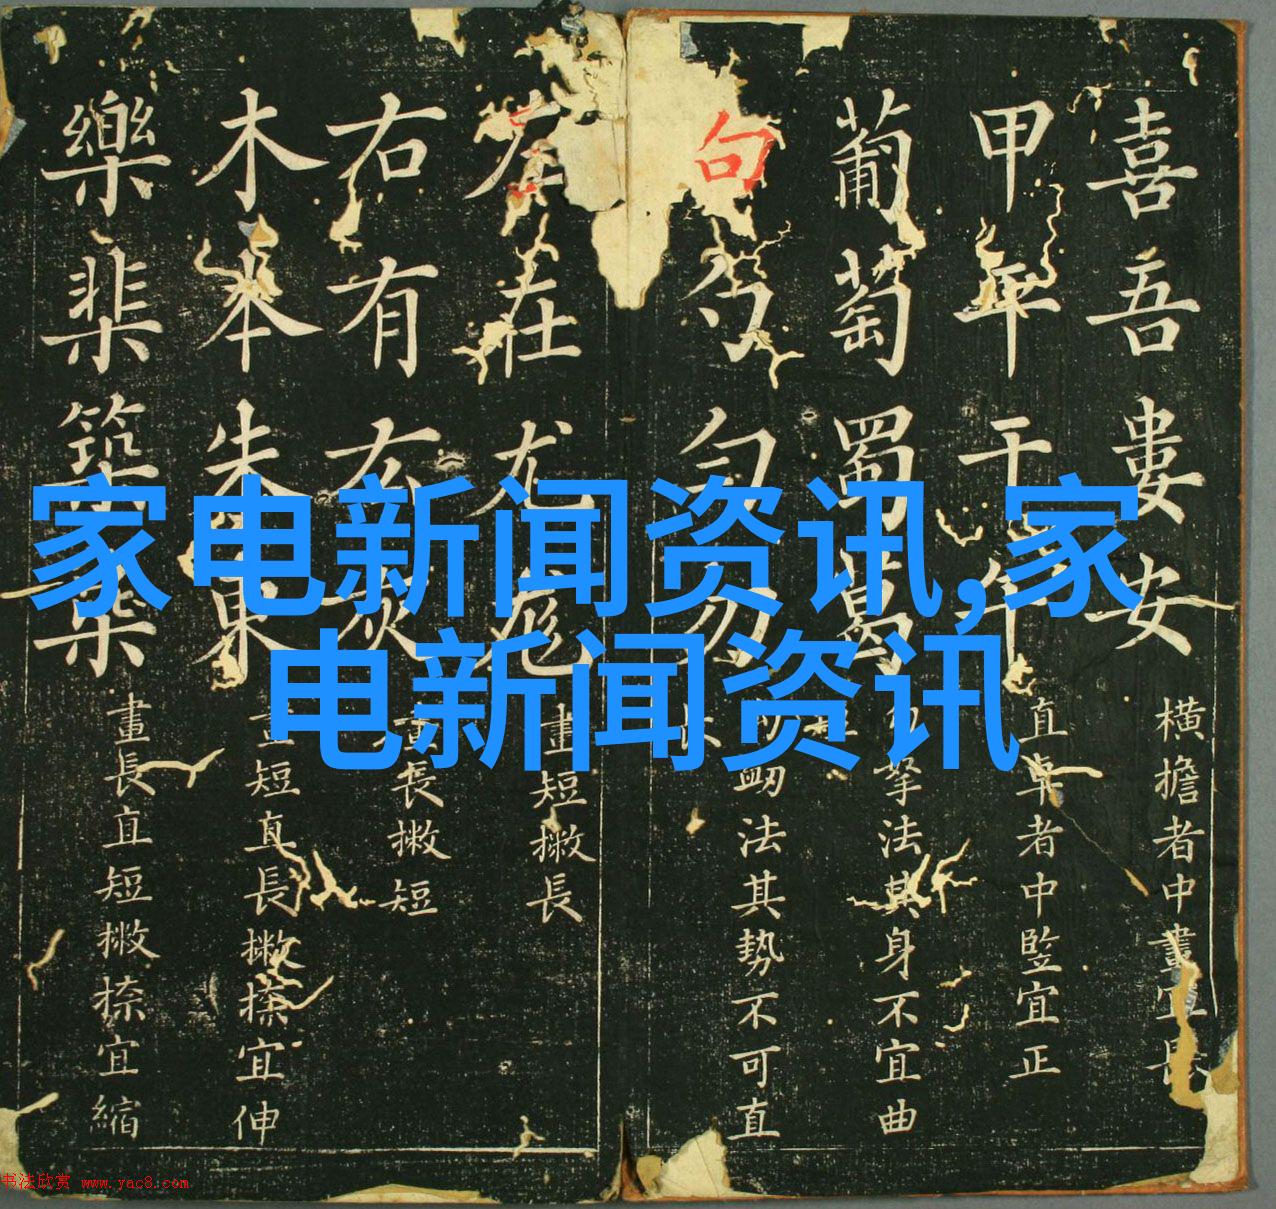 喜吾婁安
横擔者中畫宜長
甲平干年
直卓者中竪宜正
葡萄蜀葛
法其身不宜曲
句勹勻勿
法其勢不可直
左在尤尨
畫短撇長
右有灰
畫長撇短
木本朱東
畫短直長撇捺宜伸
樂棐築
畫長直短撇捺宜縮
家电新闻资讯,家
电新闻资讯
书法欣赏 www.yac8.com